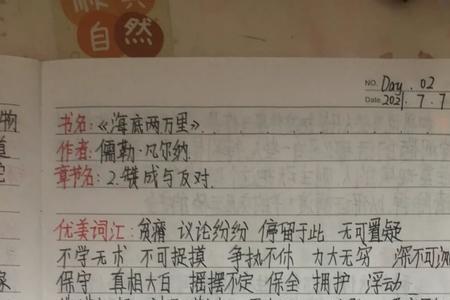 自然
NO. Day. 02
Date 2021. 7. 7
书名:《海底两万里》.
作者: 儒勒·凡尔纳.
章节名: 2.赞成与反对.
优美词汇: 贫瘠 议论纷纷 停留于此 无可置疑
不学无术 不可捉摸 争执不休 力大无穷 深不可
保守 真相大白 摇摆不定 保全 拥护 浮动